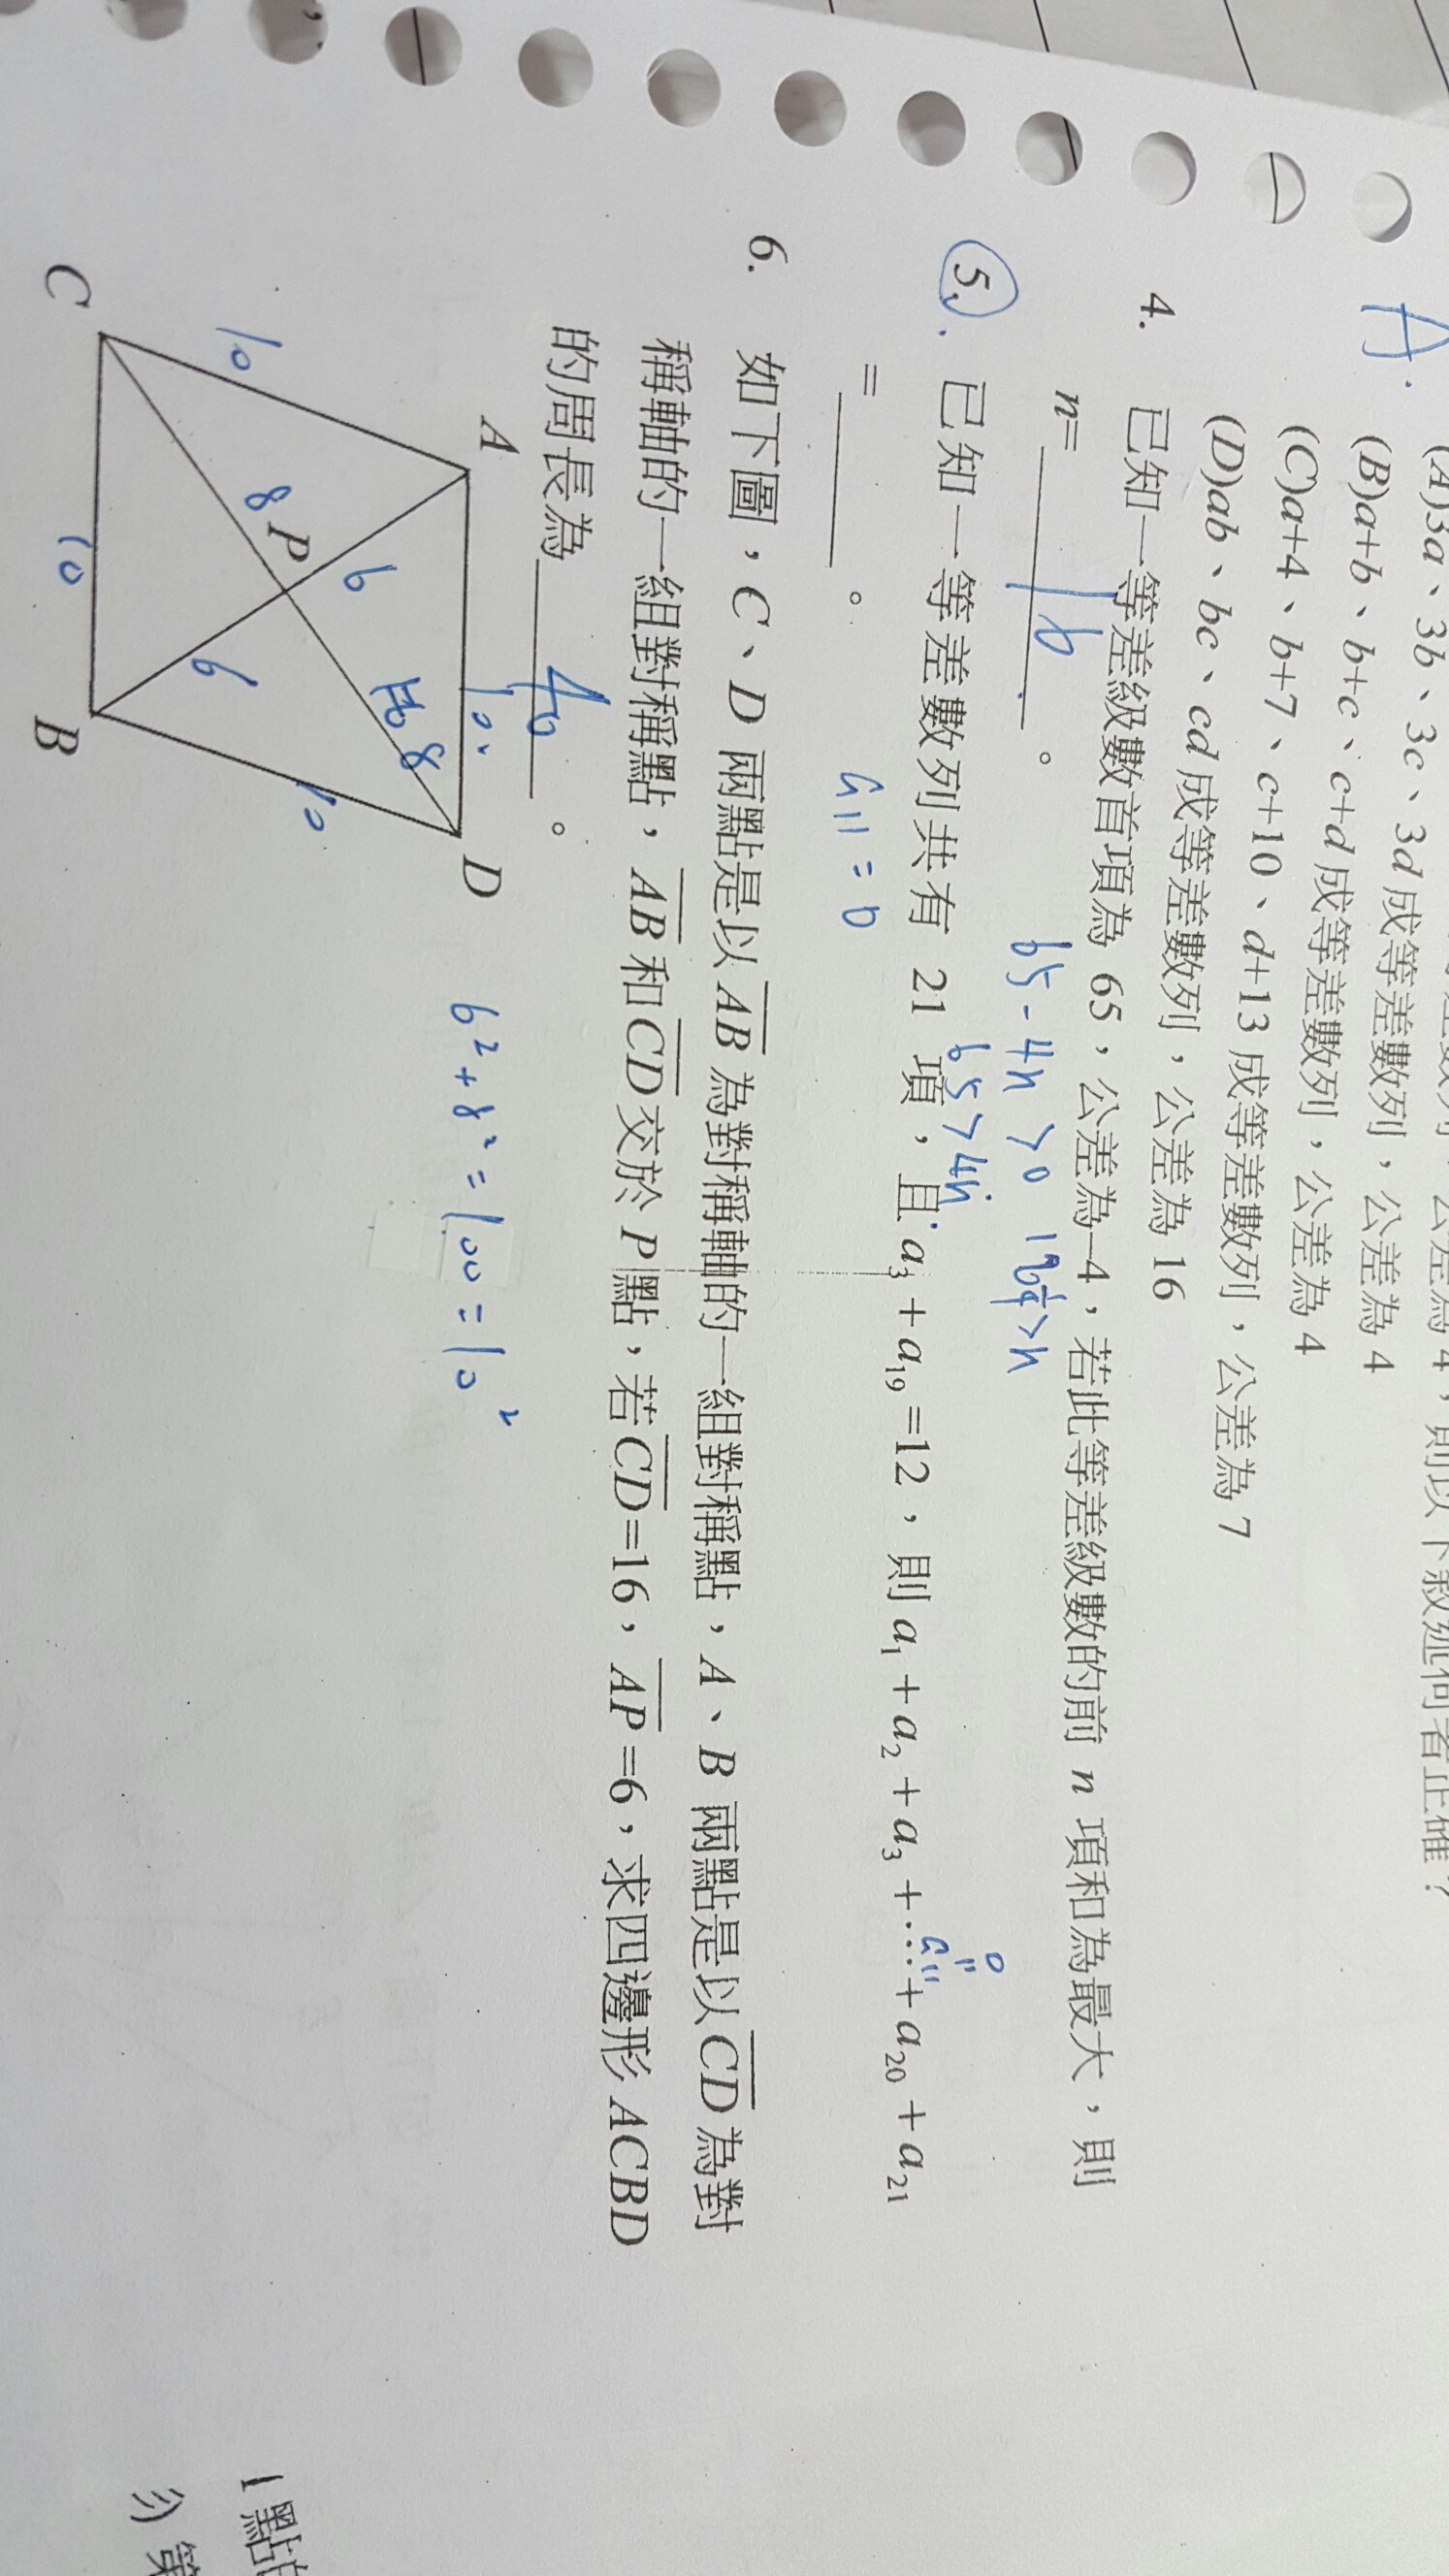 A.
(A)3a、3b、3c、3d成等差數列,公差為4
(B)a+b、b+c、c+d成等差數列,公差為4
(C)a+4、b+7、c+10、d+13成等差數列,公差為7
(D)ab、bc、cd成等差數列,公差為16
4. 已知一等差級數首項為 65,公差為–4,若此等差級數的前 n 項和為最大,則
n= 16 。
65-4n>0
65>4n
16¼>n
5. 已知一等差數列共有 21 項,且a₃+a₁₉=12,則a₁+a₂+a₃+…+a₂₀+a₂₁
= 。
a11=0
0
"
a11
6. 如下圖,C、D 兩點是以AB為對稱軸的一組對稱點,A、B 兩點是以CD為對
稱軸的一組對稱點,AB和CD交於P點,若CD=16,AP=6,求四邊形ACBD
的周長為 40 。
6²+8²=100=10²
A
D
10
10
6
8
P
8
6
10
C
10
B